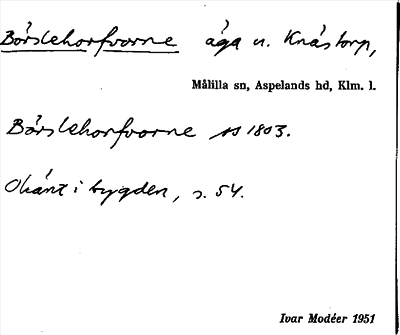 Börslehorfvorne äga n. Knästorp,
Målilla sn, Aspelands hd, Klm. l.
Börslehorfvorne ss 1803.
Okänt i bygden, s. 54.
Ivar Modéer 1951